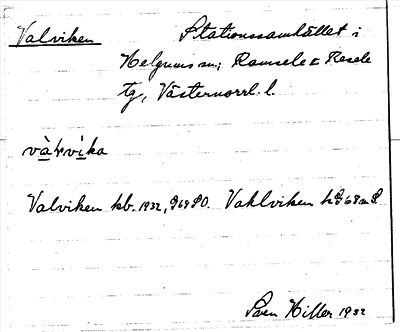 Valviken Stationssamhället i
Helgums sn; Ramsele o Resele
tg, Västernorrl. l.
và4vìka
Valviken kb. 1932, Vahlviken
Sven Hiller 1932